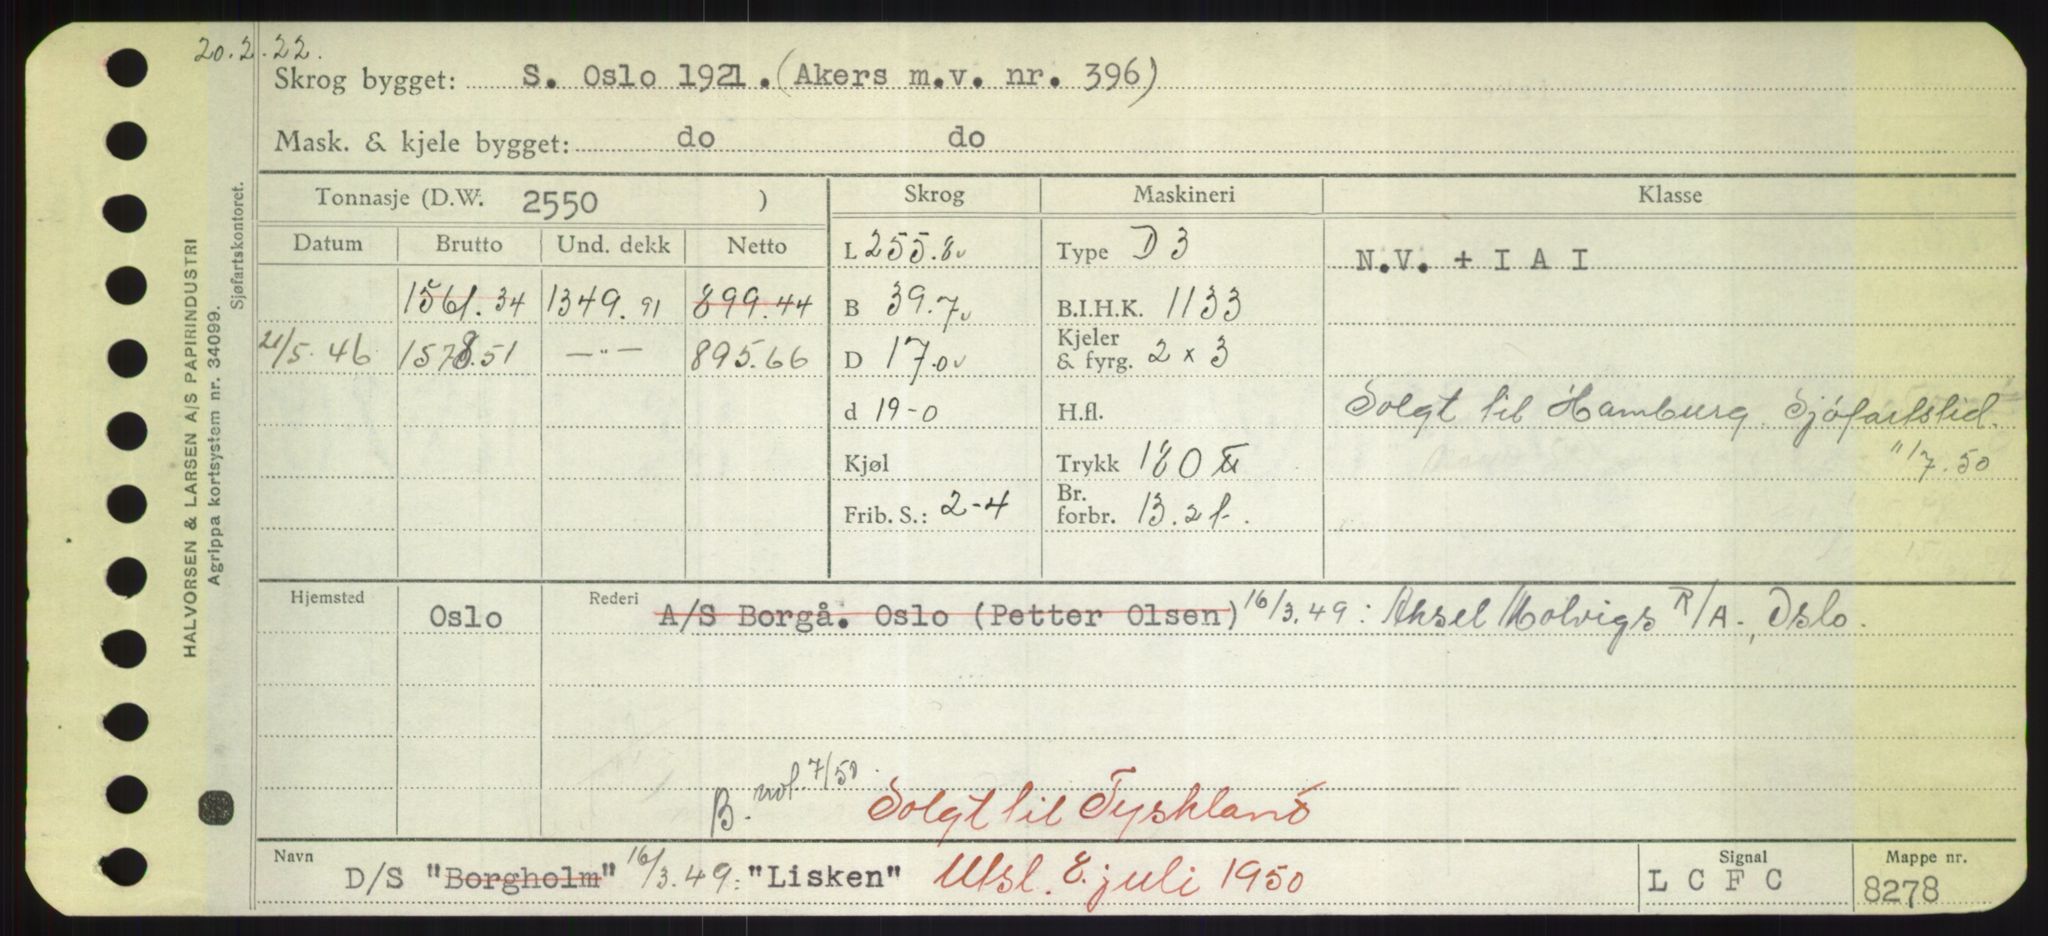 20.2.22.
Skrog bygget: S. Oslo 1921. (Akers m.v. nr. 396)
Mask. & kjele bygget: do do
Tonnasje (D.W. 2550 ) Skrog Maskineri Klasse
Datum Brutto Und. dekk Netto
L 255.8 Type D 3 N.V. + I A I
1561.34 1349.91 899.44 B 39.7 B.I.H.K. 1133
21/5.46 1578.51 —"— 895.66 D 17.0 Kjeler & fyrg. 2 x 3
d 19-0 H.fl. Solgt til Hamburg Sjöfartstid.
Kjøl Trykk 180 11/7.50
Frib. S.: 2-4 Br. forbr. 13.2 t.
Hjemsted Oslo Rederi A/S Borgå. Oslo (Petter Olsen) 16/3.49: Aksel Molvigs R/A., Oslo.
B. not. 7/50. Solgt til Tyskland
Navn D/S "Borgholm" 16/3.49: "Lisken" Utsl. 8. juli 1950 Signal L C F C Mappe nr. 8278
HALVORSEN & LARSEN A/S PAPIRINDUSTRI
Agrippa kortsystem nr. 34099.
Sjøfartskontoret.